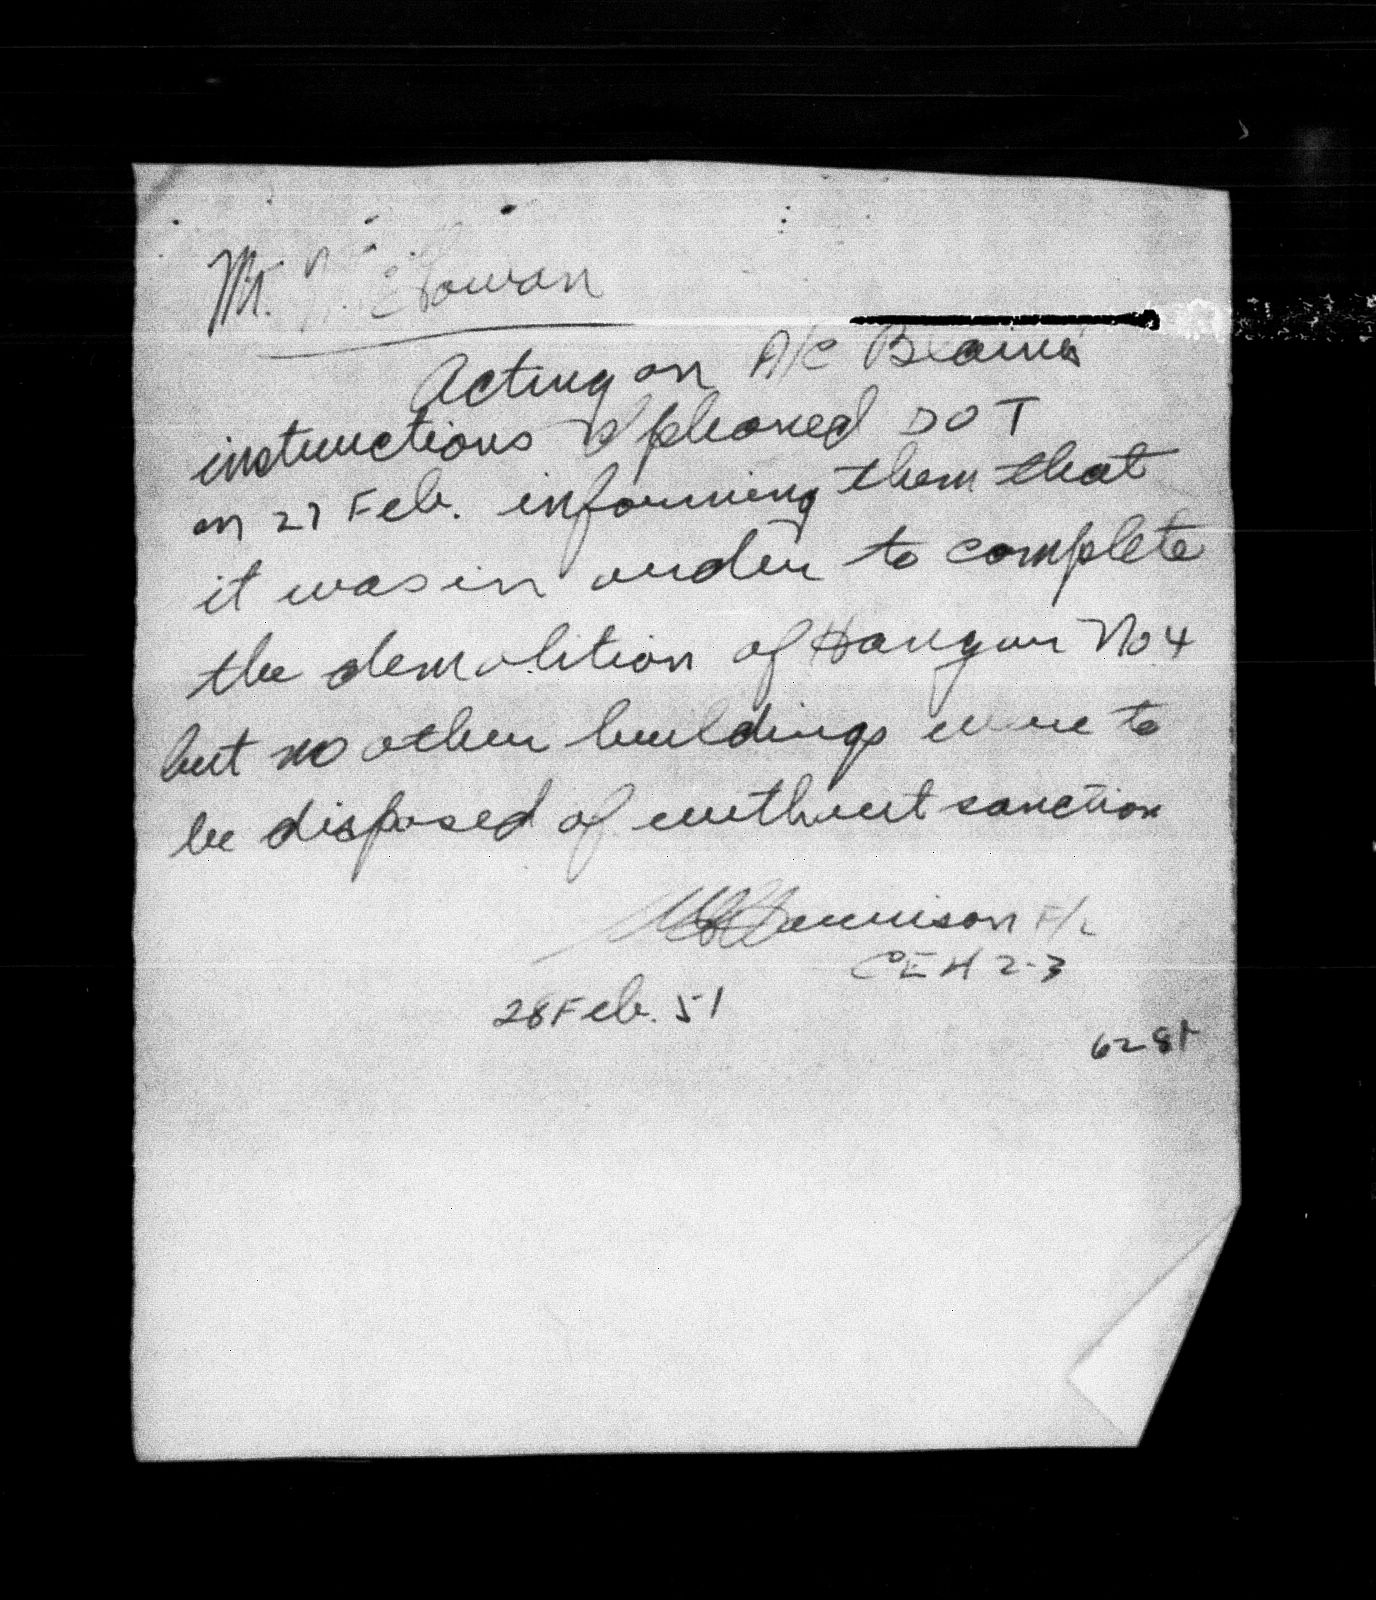 Mr.
Acting on A/C Brains
instructions I phoned DOT
on 27 Feb. informing them that
it was in order to complete
the demolition of Hangar No 4
but no other buildings were to
be disposed of without sanction
F/L
CEH 2-3
28 Feb. 51